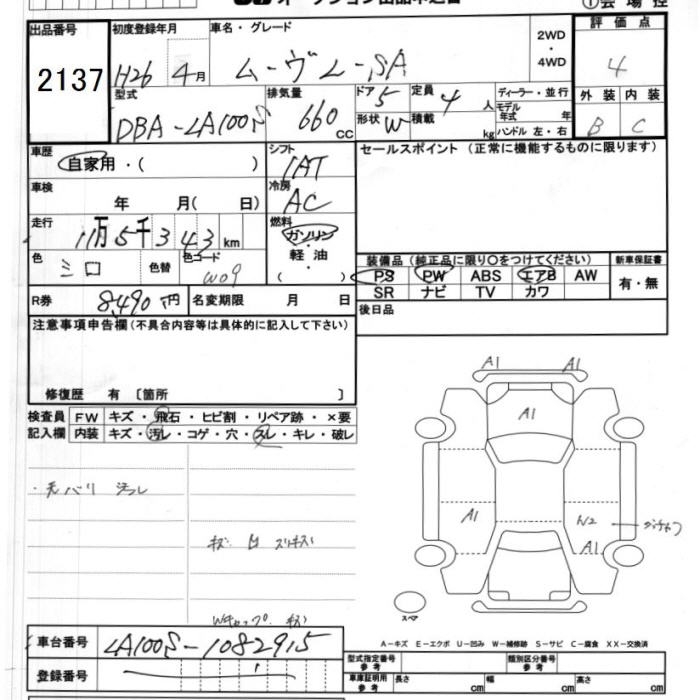 出品番号
2137
初度登録年月
H26 4月
車名・グレード
ムーヴ L-SA
2WD
・
4WD
評価点
4
型式
DBA-LA100S
排気量
660 cc
ドア
5
形状
W
定員
4 人
積載
kg
ディーラー・並行
モデル年式 年
ハンドル 左・右
外装 内装
B C
車歴
自家用・( )
シフト
IAT
セールスポイント (正常に機能するものに限ります)
車検
年 月( 日)
冷房
AC
走行
11万5千343 km
燃料
ガソリン
・
軽油
・
( )
色
シロ
色替
色コード
W09
装備品 (純正品に限り○をつけてください)
PS PW ABS エアB AW
SR ナビ TV カワ
新車保証書
有・無
R券
8,490円
名変期限 月 日
後日品
注意事項申告欄(不具合内容等は具体的に記入して下さい)
修復歴 有 〔箇所 〕
検査員
記入欄
FW キズ・飛石・ヒビ割・リペア跡・×要
内装 キズ・汚レ・コゲ・穴・スレ・キレ・破レ
A1 A1
A1
A1
W2
A1
スペア
A-キズ E-エクボ U-凹み W-補修跡 S-サビ C-腐食 XX-交換済
車台番号
LA100S-1082915
登録番号
型式指定番号
参考
類別区分番号
参考
車庫証明用
参考
長さ cm
幅 cm
高さ cm